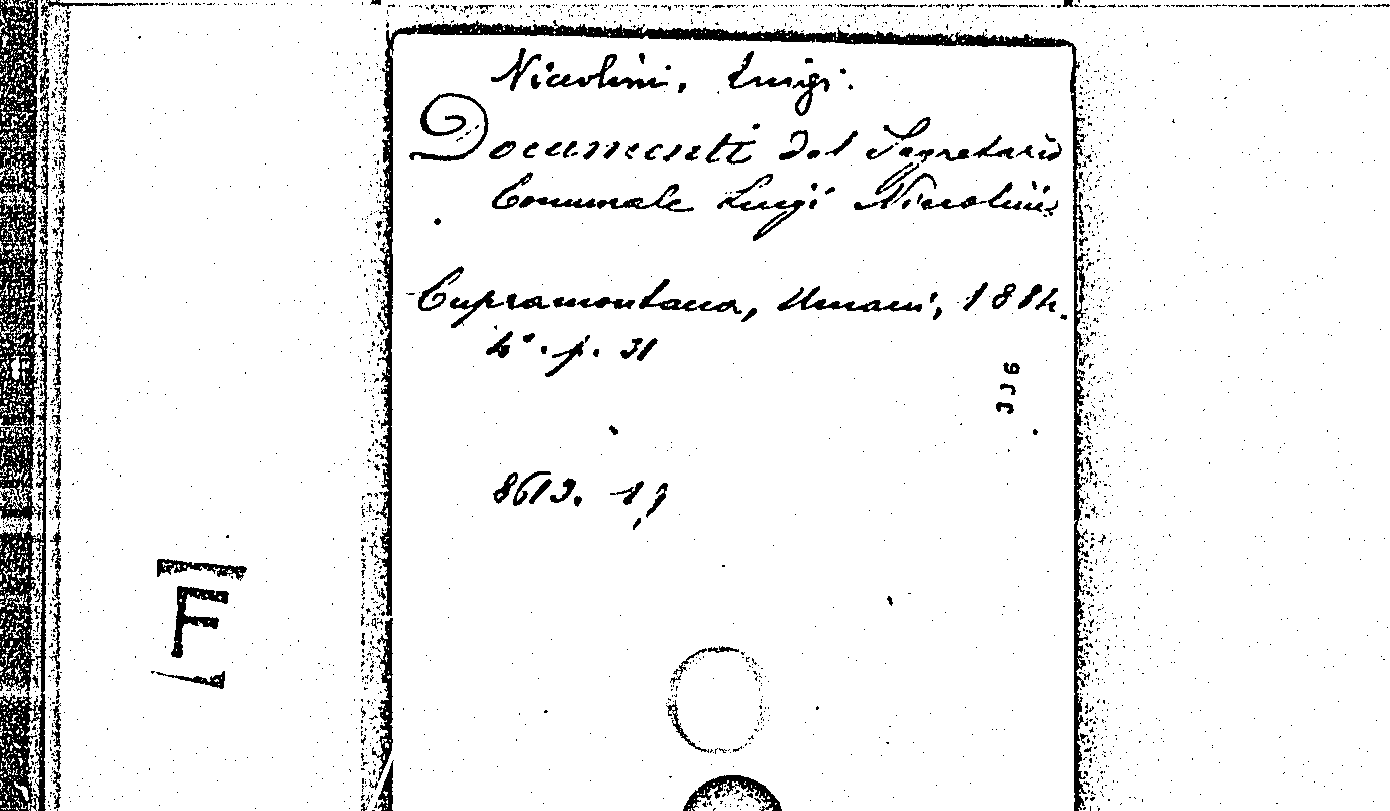 Nicolini, Luigi.
Documenti del Segretario
Comunale Luigi Nicolini
Cupramontana, Umani, 1884.
4º. p. 31
8613. 19
F